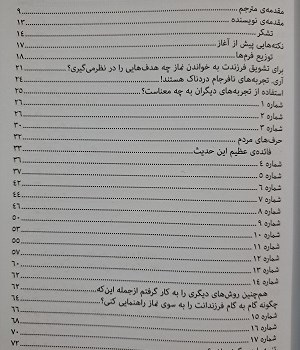 مقدمه‌ی مترجم ۹
مقدمه‌ی نویسنده ۱۳
تشکر ۱۴
نکته‌هایی پیش از آغاز ۱۷
توزیع فرم‌ها ۱۸
برای تشویق فرزندت به خواندن نماز چه هدف‌هایی را در نظرمی‌گیری؟ ۲۱
آری. تجربه‌های نافرجام دردناک هستند! ۲۴
استفاده از تجربه‌های دیگران به چه معناست؟ ۲۵
شماره ۱ ۲۶
شماره ۲ ۲۶
شماره ۳ ۳۰
حرف‌های مردم ۳۲
فائده‌ی عظیم این حدیث ۳۳
شماره ۴
شماره ۵ ۳۷
شماره ۶ ۴۲
شماره ۷ ۴۴
شماره ۸ ۴۹
شماره ۹ ۵۰
شماره ۱۰ ۵۳
شماره ۱۱ ۵۵
شماره ۱۲ ۵۷
شماره ۱۳ ۶۰
شماره ۱۴ ۶۲
هم‌چنین روش‌های دیگری را به کار گرفتم ازجمله این‌که...
چگونه گام به گام فرزندانت را به سوی نماز راهنمایی کنی؟ ۶۴
شماره ۱۵ ۶۵
شماره ۱۶ ۶۸
شماره ۱۷ ۷۰
۷۲